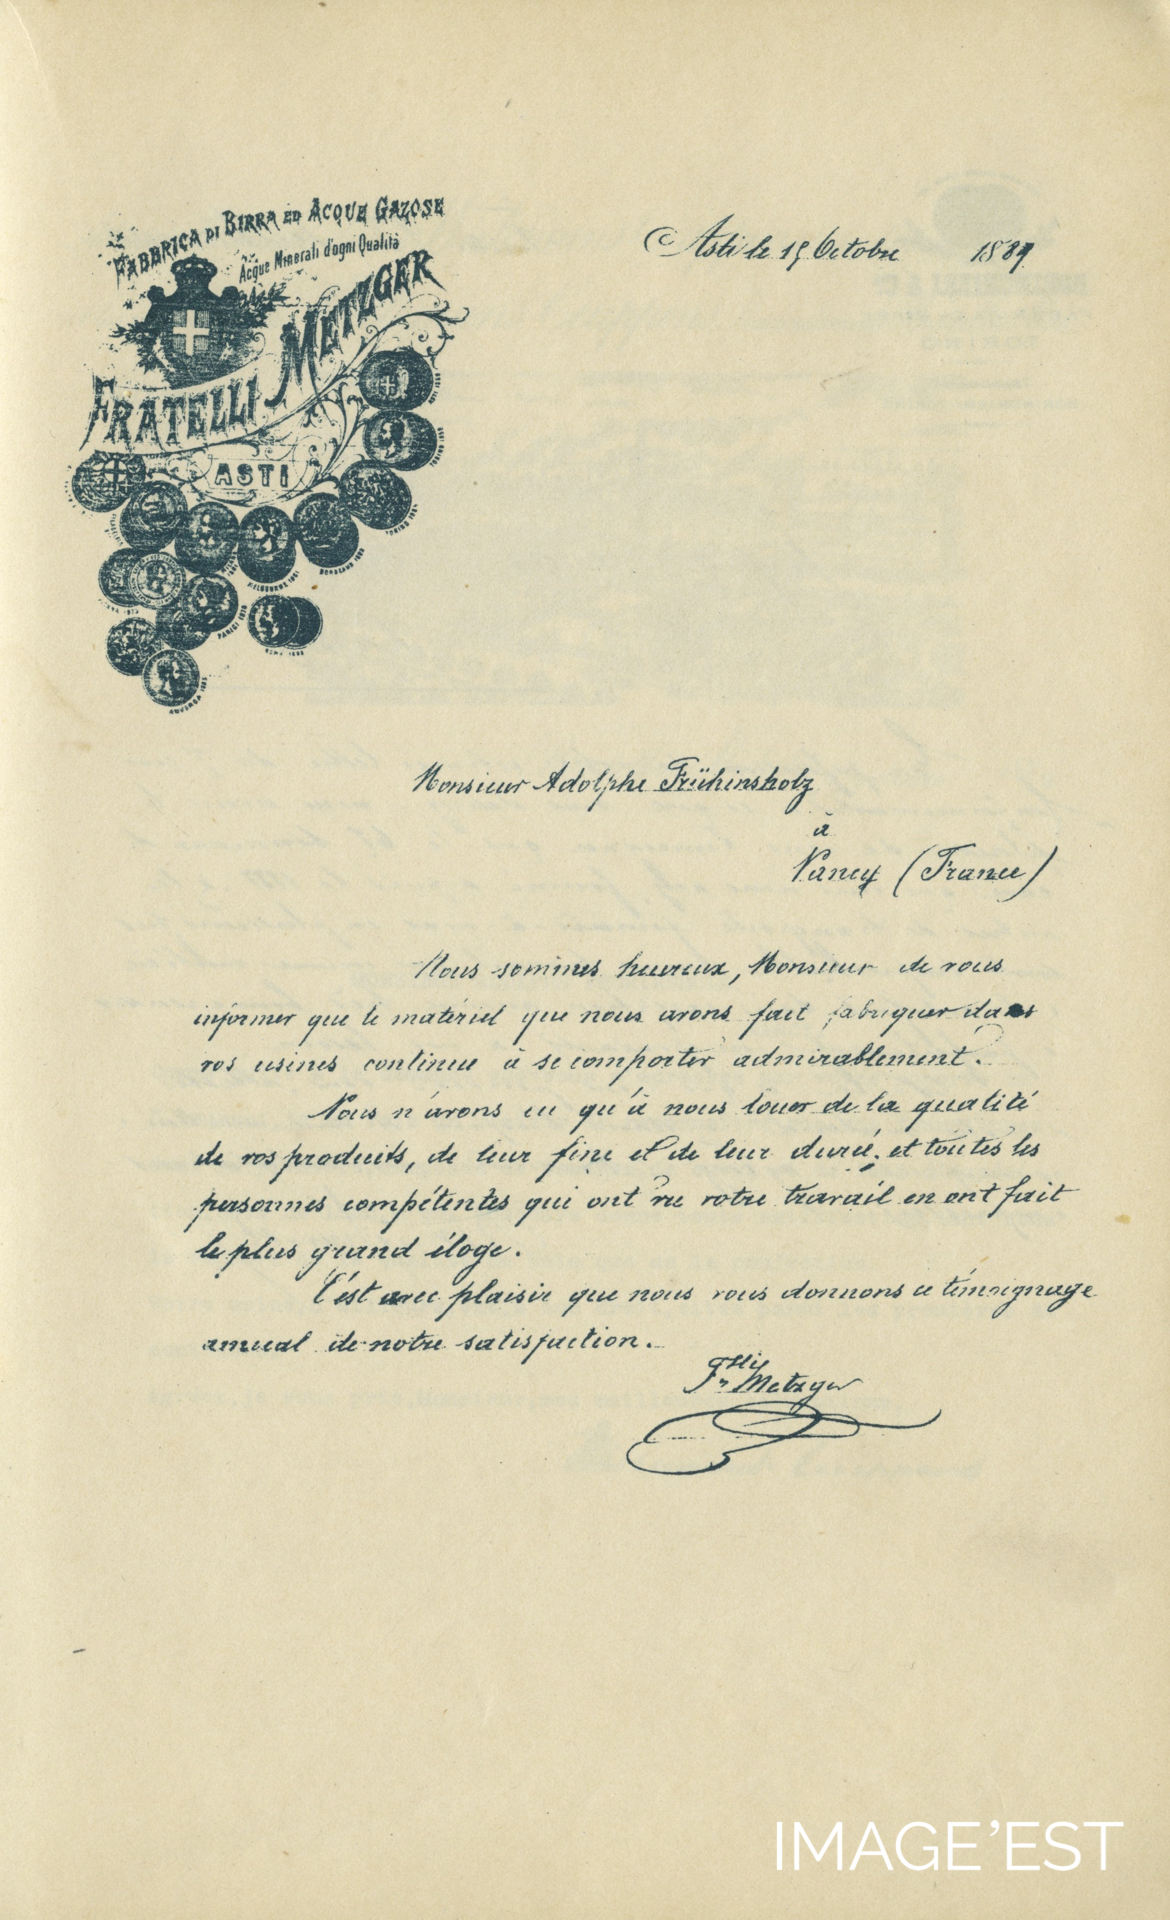 FABBRICA DI BIRRA ED ACQUE GAZOSE
Acque Minerali d'ogni Qualità
FRATELLI METZGER
ASTI
MELBOURNE 1881
BORDEAUX 1882
TORINO 1884
PARIGI 1878
ROMA
Asti le 15 Octobre 1889
Monsieur Adolphe Frühinsholz
à
Nancy (France)
Nous sommes heureux, Monsieur de vous
informer que le matériel que nous avons fait fabriquer dans
vos usines continue à se comporter admirablement.
Nous n'avons eu qu'à nous louer de la qualité
de vos produits, de leur fini et de leur durée, et toutes les
personnes compétentes qui ont vu votre travail en ont fait
le plus grand éloge.
C'est avec plaisir que nous vous donnons ce témoignage
annuel de notre satisfaction.
Metzger
IMAGE'EST